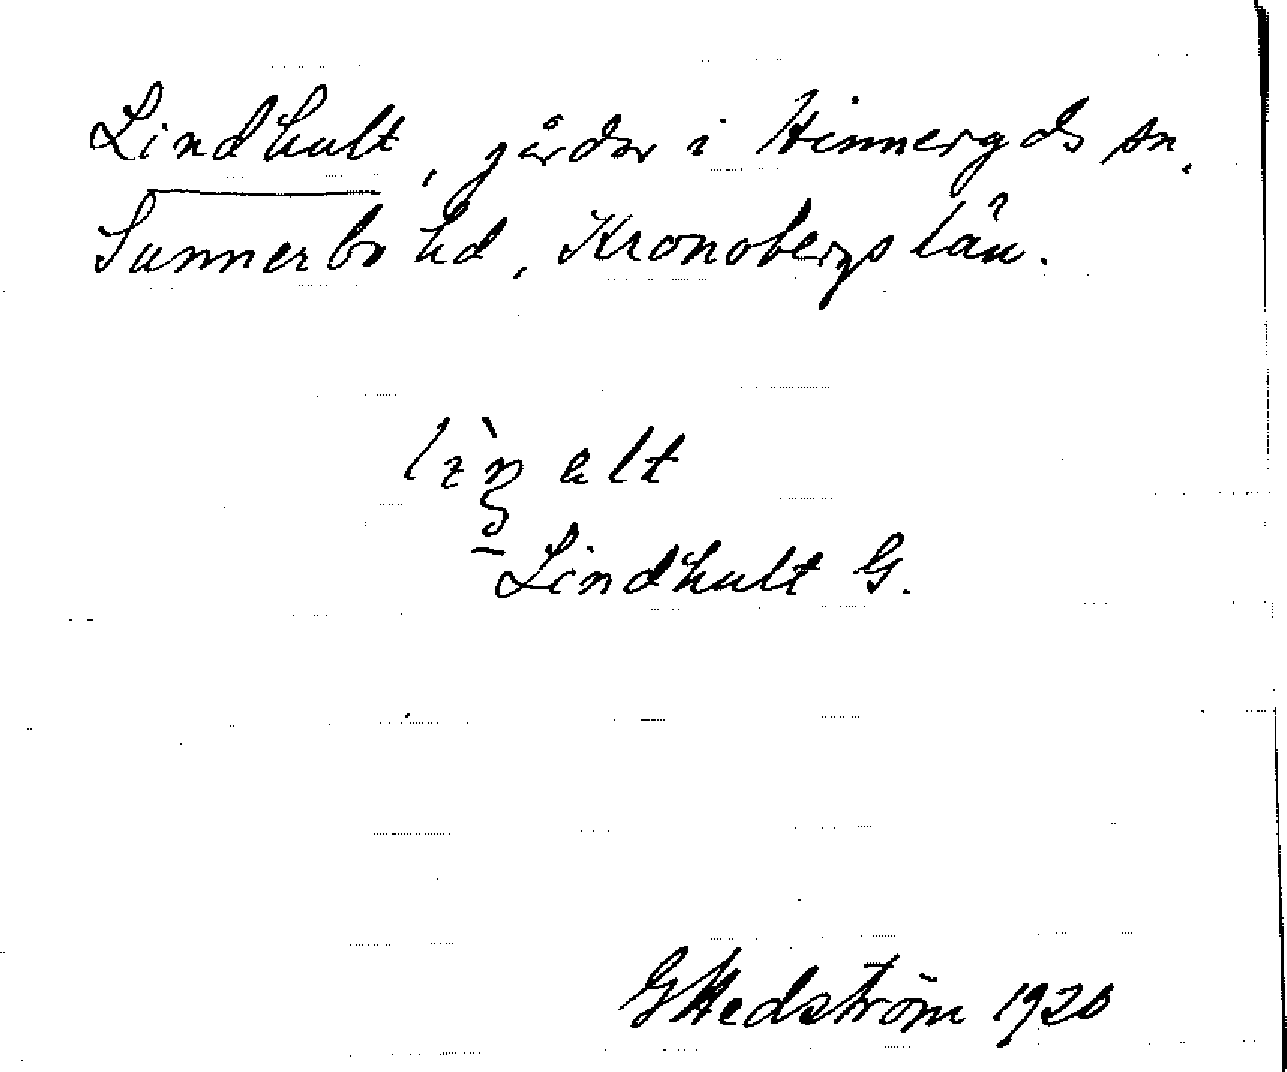 Lindhult, gårdar i Hinneryds sn.
Sunnerbo hd, Kronobergs län.
Lindhult G.
G Hedström 1920